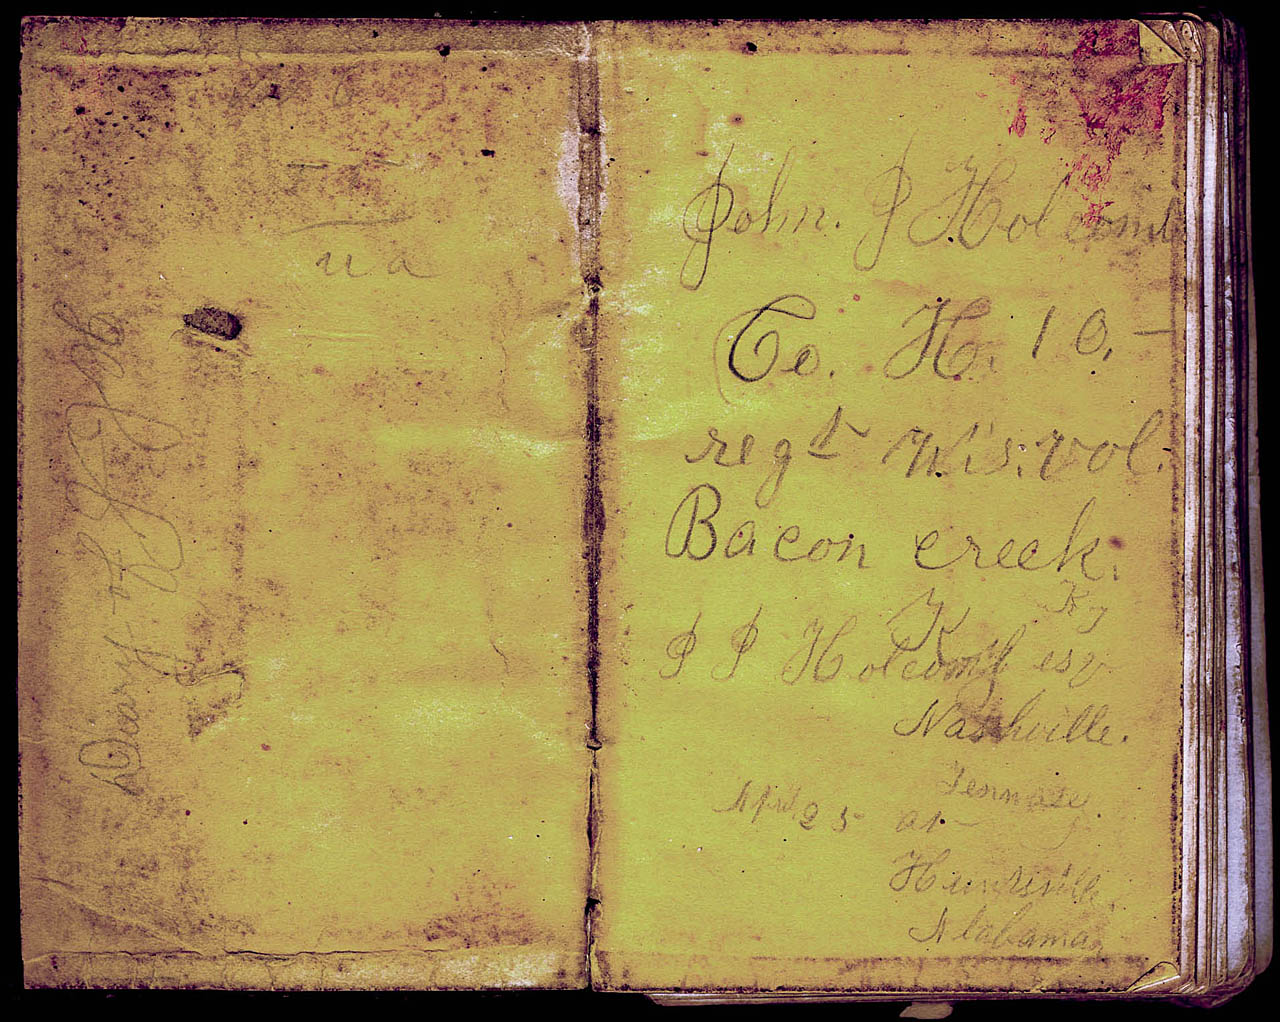 ua
Diary of J J
John. J Holcomb
Co. H. 10. –
regt Wis. vol.
Bacon creek.
Ky
J J Holcomb esq
Nashville.
Tennessy.
April 25 at
Huntsville
Alabama